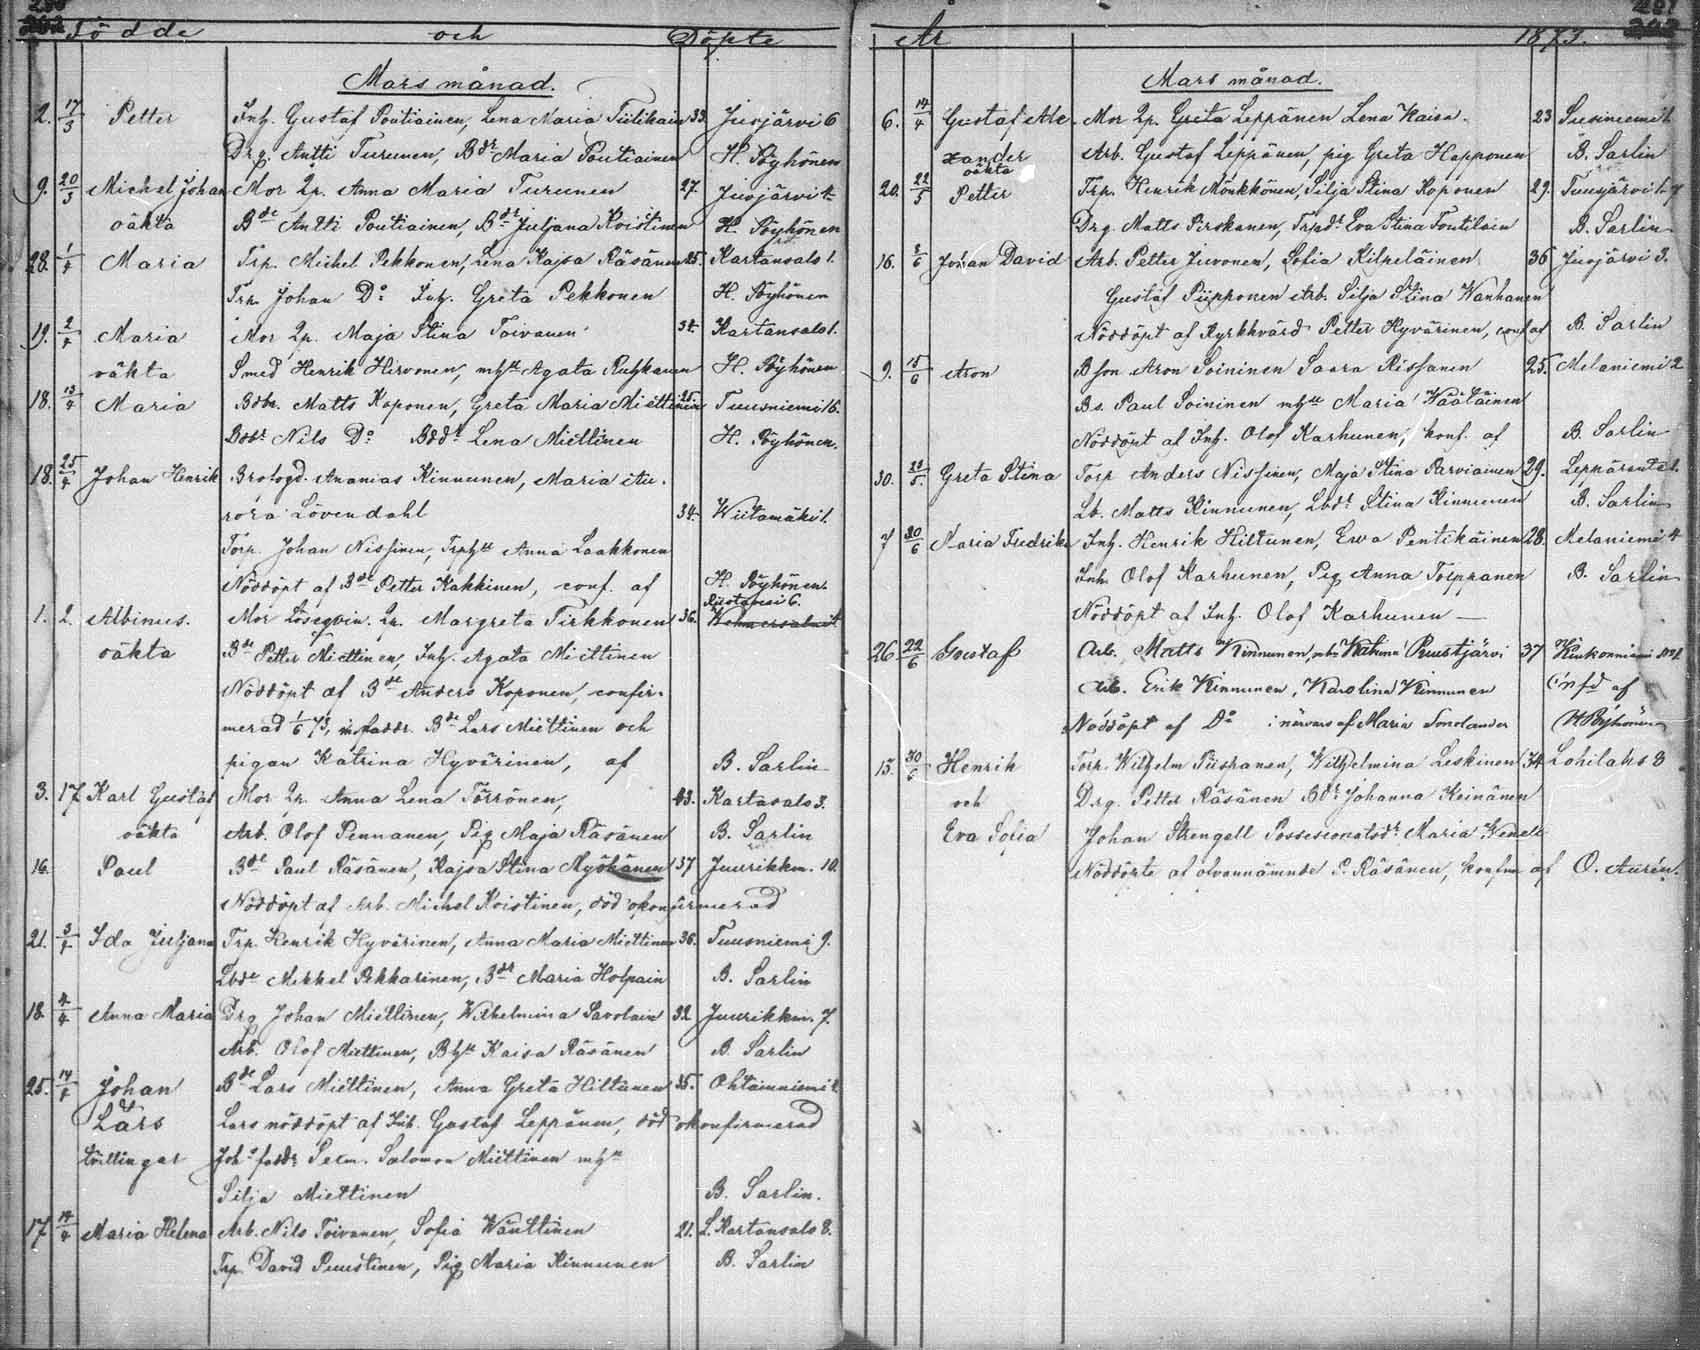 Födde och Döpte
Mars månad.
2. 17/3 Petter Inh. Gustaf Poutiainen, Lena Maria Tiilikain 33. Juojärvi 6
Drg. Antti Turunen, Bdr Maria Poutiainen H. Pöyhönen
9. 20/3 Michel Johan Mor Qp. Anna Maria Turunen 27. Juojärvi
oäkta Bde Antti Poutiainen, Bdr Juljana Koistinen H. Pöyhönen
28. 1/4 Maria Trp. Michel Pekkonen, Lena Kajsa Räsänen 25. Kartansalo 1.
Trp. Johan Do Inh. Greta Pekkonen H. Pöyhönen
19. 2/4 Maria Mor Qp. Maja Stina Toivanen 34. Kartansalo 1.
oäkta Smed Henrik Hirvonen, Agata H. Pöyhönen
18. 13/4 Maria Matts Koponen, Greta Maria Miettinen 25. Tuusniemi 16.
Nils Do Lena Miettinen H. Pöyhönen.
18. 25/4 Johan Henrik Ananias Kinnunen, Maria Au-
rora Lövendahl 34. Wiitamäki 1.
Torp. Johan Nissinen, Anna Laakkonen
Nöddöpt af Bde Petter Kakkinen, conf. af H. Pöyhönen.
Riistavesi 6.
1. 2. Albinus. Mor Lösegvin. Qp. Margreta Tirkkonen 36.
oäkta Bde Petter Miettinen, Inh. Agata Miettinen
Nöddöpt af Bde Anders Koponen, confir-
merad 1/6 73, faddr. Bde Lars Miettinen och
pigan Katrina Hyvärinen, af B. Sarlin
3. 17 Karl Gustaf Mor Qp. Anna Lena Törrönen, 43. Kartasalo 3.
oäkta Arb. Olof Pennanen, Pig Maja Räsänen B. Sarlin
16. Paul Bde Paul Räsänen, Kajsa Stina Myöhänen 37 Juurikkm. 10.
Nöddöpt af Arb. Michel Koistinen, död okonfirmerad
21. 3/4 Ida Juljana Trp. Henrik Hyvärinen, Anna Maria Miettinen 36. Tuusniemi 9.
Lbde Mikkel Pekkarinen, Bdr Maria Holpain B. Sarlin
18. 4/4 Anna Maria Drg Johan Miettinen, Wilhelmina Savolain 32 Juurikkm. 7.
Arb. Olof Miettinen, Kaisa Räsänen B. Sarlin
25. 14/4 Johan Bde Lars Miettinen, Anna Greta Hiltunen 35. Ohtaanniemi 2
& Lars Lars nöddöpt af Inh. Gustaf Leppänen, död okonfirmerad
tvillingar Joh:s faddr Salomon Miettinen
Silja Miettinen B. Sarlin.
17 14/4 Maria Helena Arb. Nils Toivanen, Sofia Wänttinen 21. L. Kartansalo 8.
Trp David Puustinen, Pig Maria Kinnunen B. Sarlin
År 1873.
Mars månad.
6. 14/4 Gustaf Ale- Mor Qp. Greta Leppänen Lena Kaisa. 23 Susiniemi 1.
xander Arb. Gustaf Leppänen, pig Greta Happonen B. Sarlin
oäkta
20. 22/5 Petter Trp. Henrik Mönkkönen, Silja Stina Koponen 29. Tuusjärvi 7
Drg. Matts Pirskanen, Eva Stina Toutilain B. Sarlin
16. 2/6 Johan David Arb. Petter Juvonen, Sofia Kilpeläinen 36 Juojärvi 3.
Gustaf Piipponen Arb. Silja Stina Wanhanen
Nöddöpt af Kyrkhvärd Petter Hyvärinen, conf af B. Sarlin
9. 15/6 Aron Bson Aron Soininen Saara Rissanen 25. Melaniemi 2
Bs. Paul Soininen Maria Wäätäinen
Nöddöpt af Inh. Olof Karhunen, konf. af B. Sarlin
30. Greta Stina Torp Anders Nissinen, Maja Stina Parviainen 29. Leppäranta 1.
Lb. Matts Kinnunen, Lbdr Stina Kinnunen B. Sarlin
7 20/6 Maria Fredrika Inh. Henrik Hiltunen, Ewa Pentikäinen 28. Melaniemi 4
Inh. Olof Karhunen, Pig Anna Toippanen B. Sarlin
Nöddöpt af Inh. Olof Karhunen —
26 22/6 Gustaf Arb. Matts Kinnunen, Katrina Ruustjärvi 37
Arb. Erik Kinnunen, Karolina Kinnunen af
Nöddöpt af Do i närvaro af Maria Smolander H Pöyhönen
13. 30/6 Henrik Torp. Wilhelm Piispanen, Wilhelmina Leskinen 34 Lohilahs 3
och Drg. Petter Räsänen Bdr Johanna Keinänen
Eva Sofia Johan Strengell Maria
Nöddöpte af ofvannämnde P. Räsänen, konfm af O. Aurén.